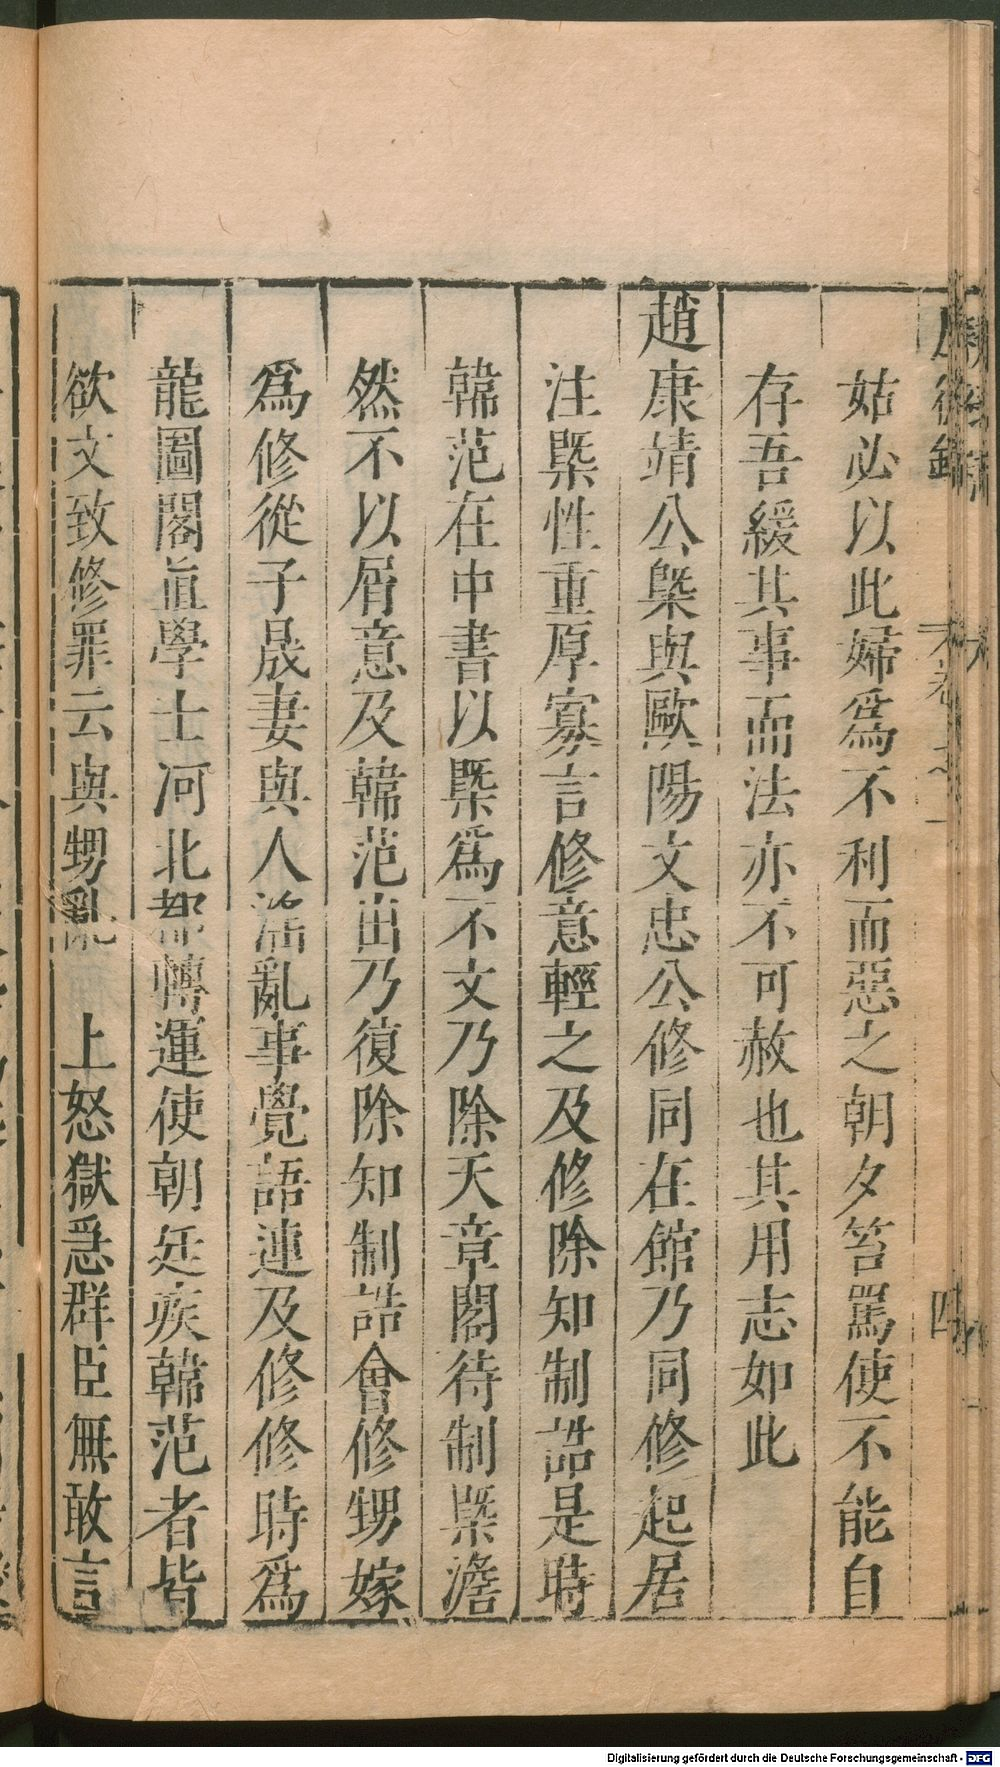 姑必以此婦爲不利而惡之朝夕笞罵使不能自
存吾緩其事而法亦不可赦也其用志如此
趙康靖公槩與歐陽文忠公修同在館乃同修起居
注槩性重厚寡言修意輕之及修除知制誥是時
韓范在中書以槩爲不文乃除天章閣待制槩澹
然不以屑意及韓范出乃復除知制誥會修甥嫁
爲修從子晟妻與人淫亂事覺語連及修修時爲
龍圖閣直學士河北都轉運使朝廷疾韓范者皆
欲文致修罪云與甥亂 上怒獄急群臣無敢言
Digitalisierung gefördert durch die Deutsche Forschungsgemeinschaft - DFG